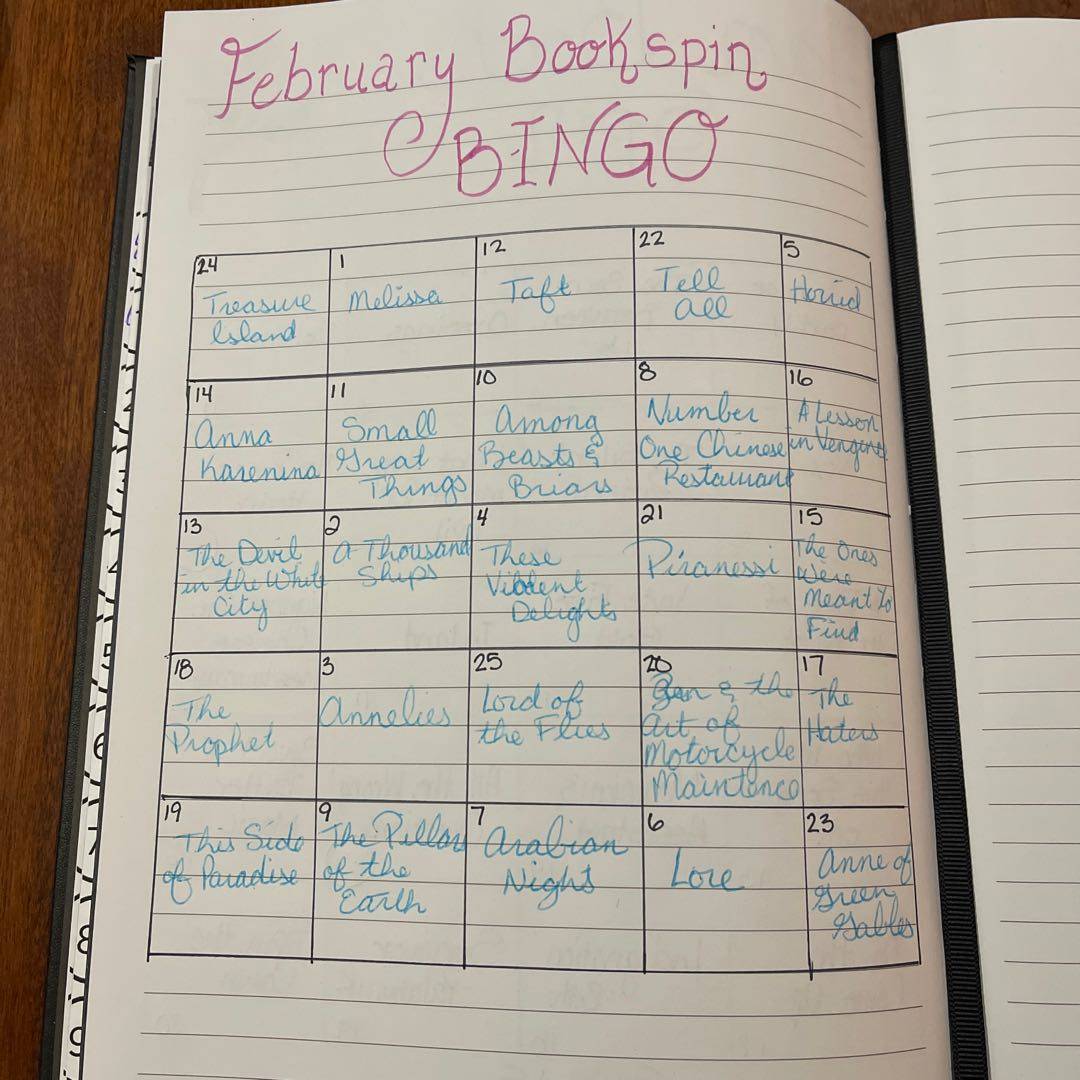 February Bookspin
BINGO
24
Treasure
Island
1
Melissa
12
Taft
22
Tell
All
5
Horrid
14
Anna
Karenina
11
Small
Great
Things
10
Among
Beasts &
Briars
8
Number
One Chinese
Restaurant
16
A Lesson
in Vengence
13
The Devil
in the White
City
2
A Thousand
Ships
4
These
Violent
Delights
21
Piranessi
15
The Ones
Were
Meant To
Find
18
The
Prophet
3
Annelies
25
Lord of
the Flies
20
Zen & the
Art of
Motorcycle
Maintence
17
The
Haters
19
This Side
of Paradise
9
The Pillars
of the
Earth
7
Arabian
Night
6
Lore
23
Anne of
Green
Gables